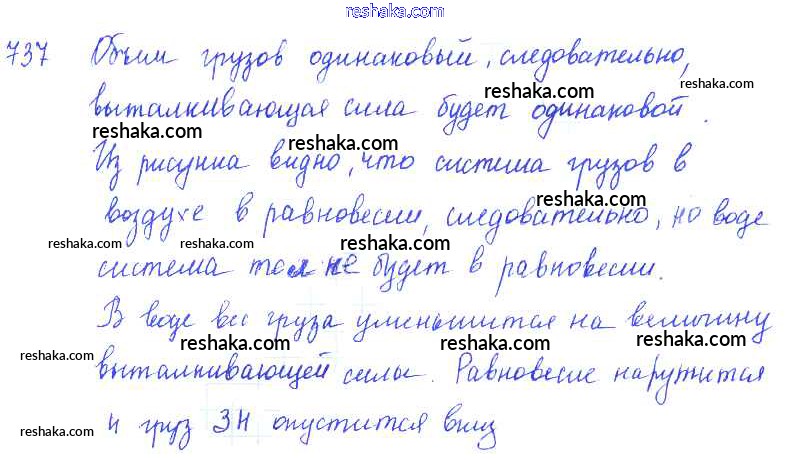 reshaka.com
737 Объем грузов одинаковый, следовательно,
reshaka.com reshaka.com
выталкивающая сила будет одинаковой.
reshaka.com reshaka.com
reshaka.com
Из рисунка видно, что система грузов в
reshaka.com
воздухе в равновесии, следовательно, но воде
reshaka.com reshaka.com reshaka.com
система то же не будет в равновесии.
В воде вес груза уменьшится на величину
reshaka.com reshaka.com reshaka.com
выталкивающей силы. Равновесие нарушится
reshaka.com reshaka.com reshaka.com
и груз 3Н опустится вниз
reshaka.com reshaka.com reshaka.com